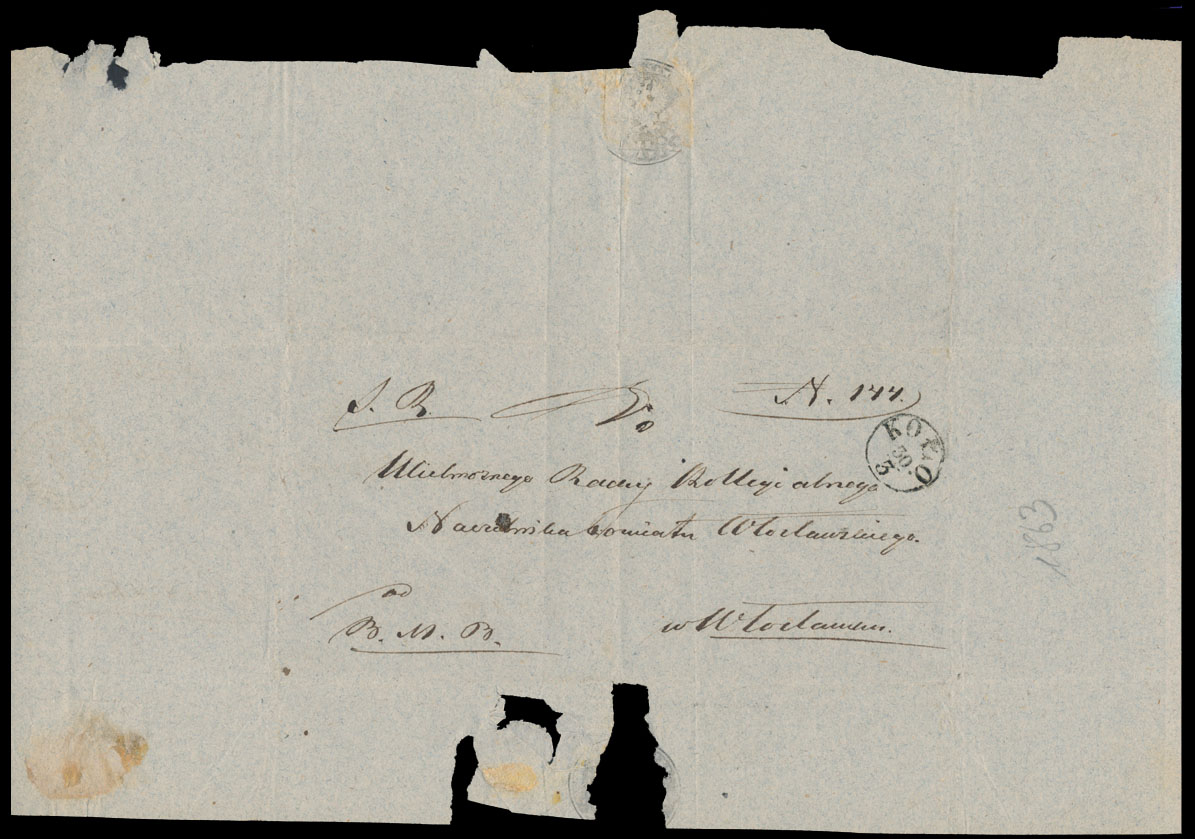 S. R. Do N. 144.
KOŁO
30.
5
Wielmożnego Radcy Kollegialnego
Naczelnika Powiatu Włocławskiego.
1863
od
B. M. B. w Włocławku.